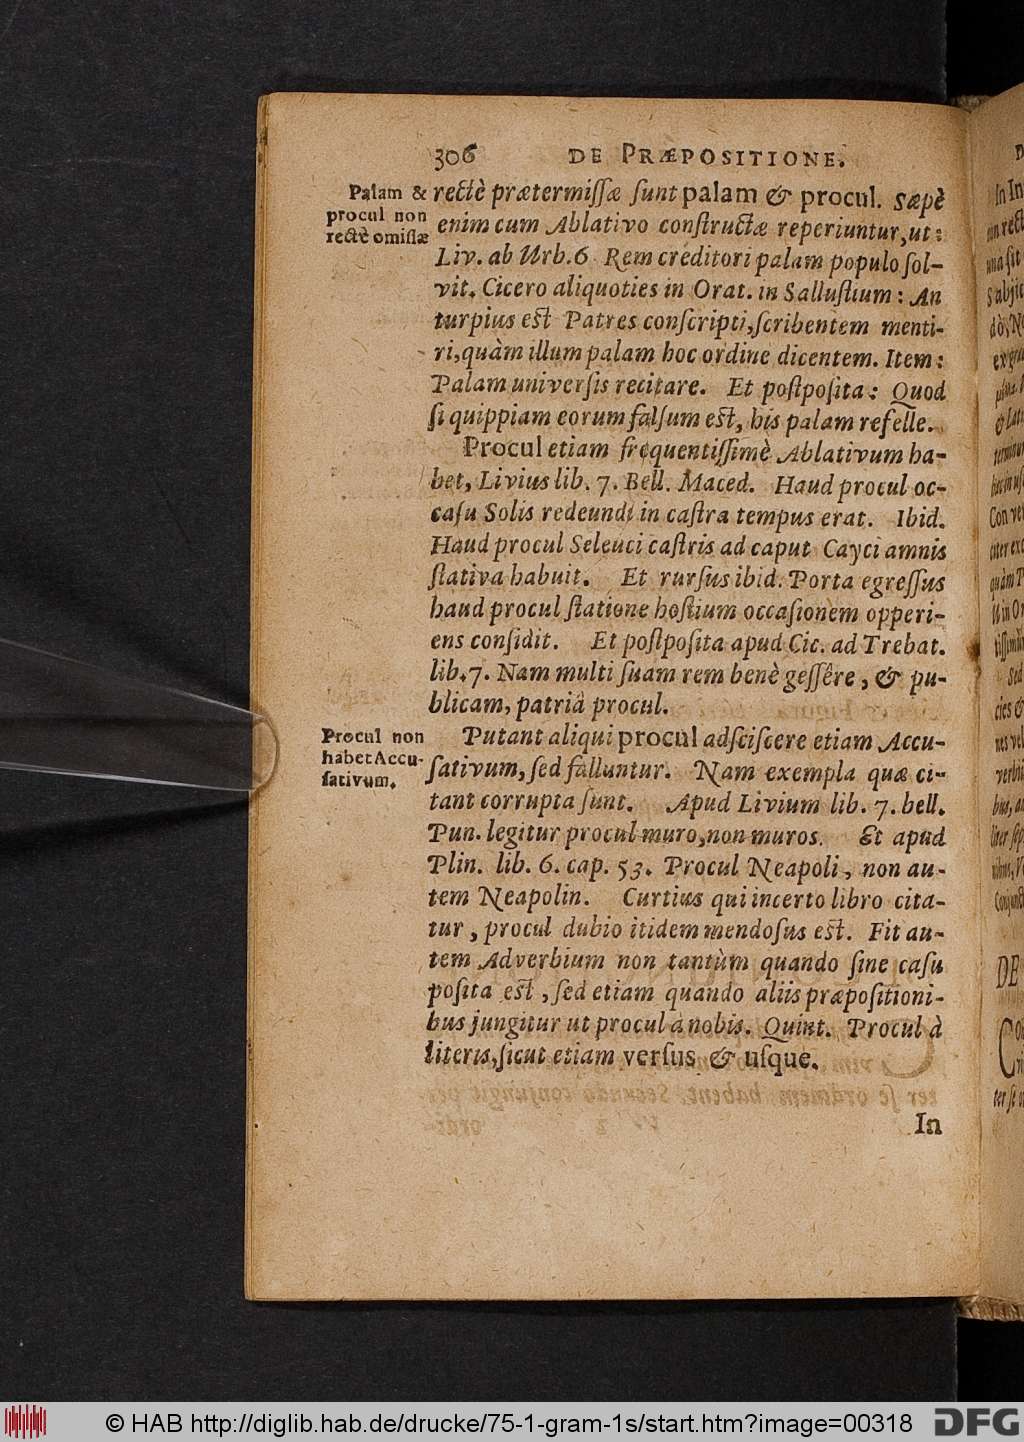 306 DE PRÆPOSITIONE.
Palam &
procul non
rectè omissæ
rectè prætermissæ sunt palam & procul. Sæpè
enim cum Ablativo constructæ reperiuntur, ut:
Liv. ab Urb. 6 Rem creditori palam populo sol-
vit. Cicero aliquoties in Orat. in Sallustium: An
turpius est Patres conscripti, scribentem menti-
ri, quàm illum palam hoc ordine dicentem. Item:
Palam universis recitare. Et postposita: Quod
si quippiam eorum falsum est, his palam refelle.
Procul etiam frequentissimè Ablativum ha-
bet, Livius lib. 7. Bell. Maced. Haud procul oc-
casu Solis redeundi in castra tempus erat. Ibid.
Haud procul Seleuci castris ad caput Cayci amnis
stativa habuit. Et rursus ibid. Porta egressus
haud procul statione hostium occasionem opperi-
ens consedit. Et postposita apud Cic. ad Trebat.
lib. 7. Nam multi suam rem benè gessêre, & pu-
blicam, patriâ procul.
Procul non
habet Accu-
sativum.
Putant aliqui procul adsciscere etiam Accu-
sativum, sed falluntur. Nam exempla quæ ci-
tant corrupta sunt. Apud Livium lib. 7. bell.
Pun. legitur procul muro, non muros. Et apud
Plin. lib. 6. cap. 53. Procul Neapoli, non au-
tem Neapolin. Curtius qui incerto libro cita-
tur, procul dubio itidem mendosus est. Fit au-
tem Adverbium non tantùm quando sine casu
posita est, sed etiam quando aliis præpositioni-
bus jungitur ut procul à nobis. Quint. Procul à
literis, sicut etiam versus & usque.
In
© HAB http://diglib.hab.de/drucke/75-1-gram-1s/start.htm?image=00318
DFG